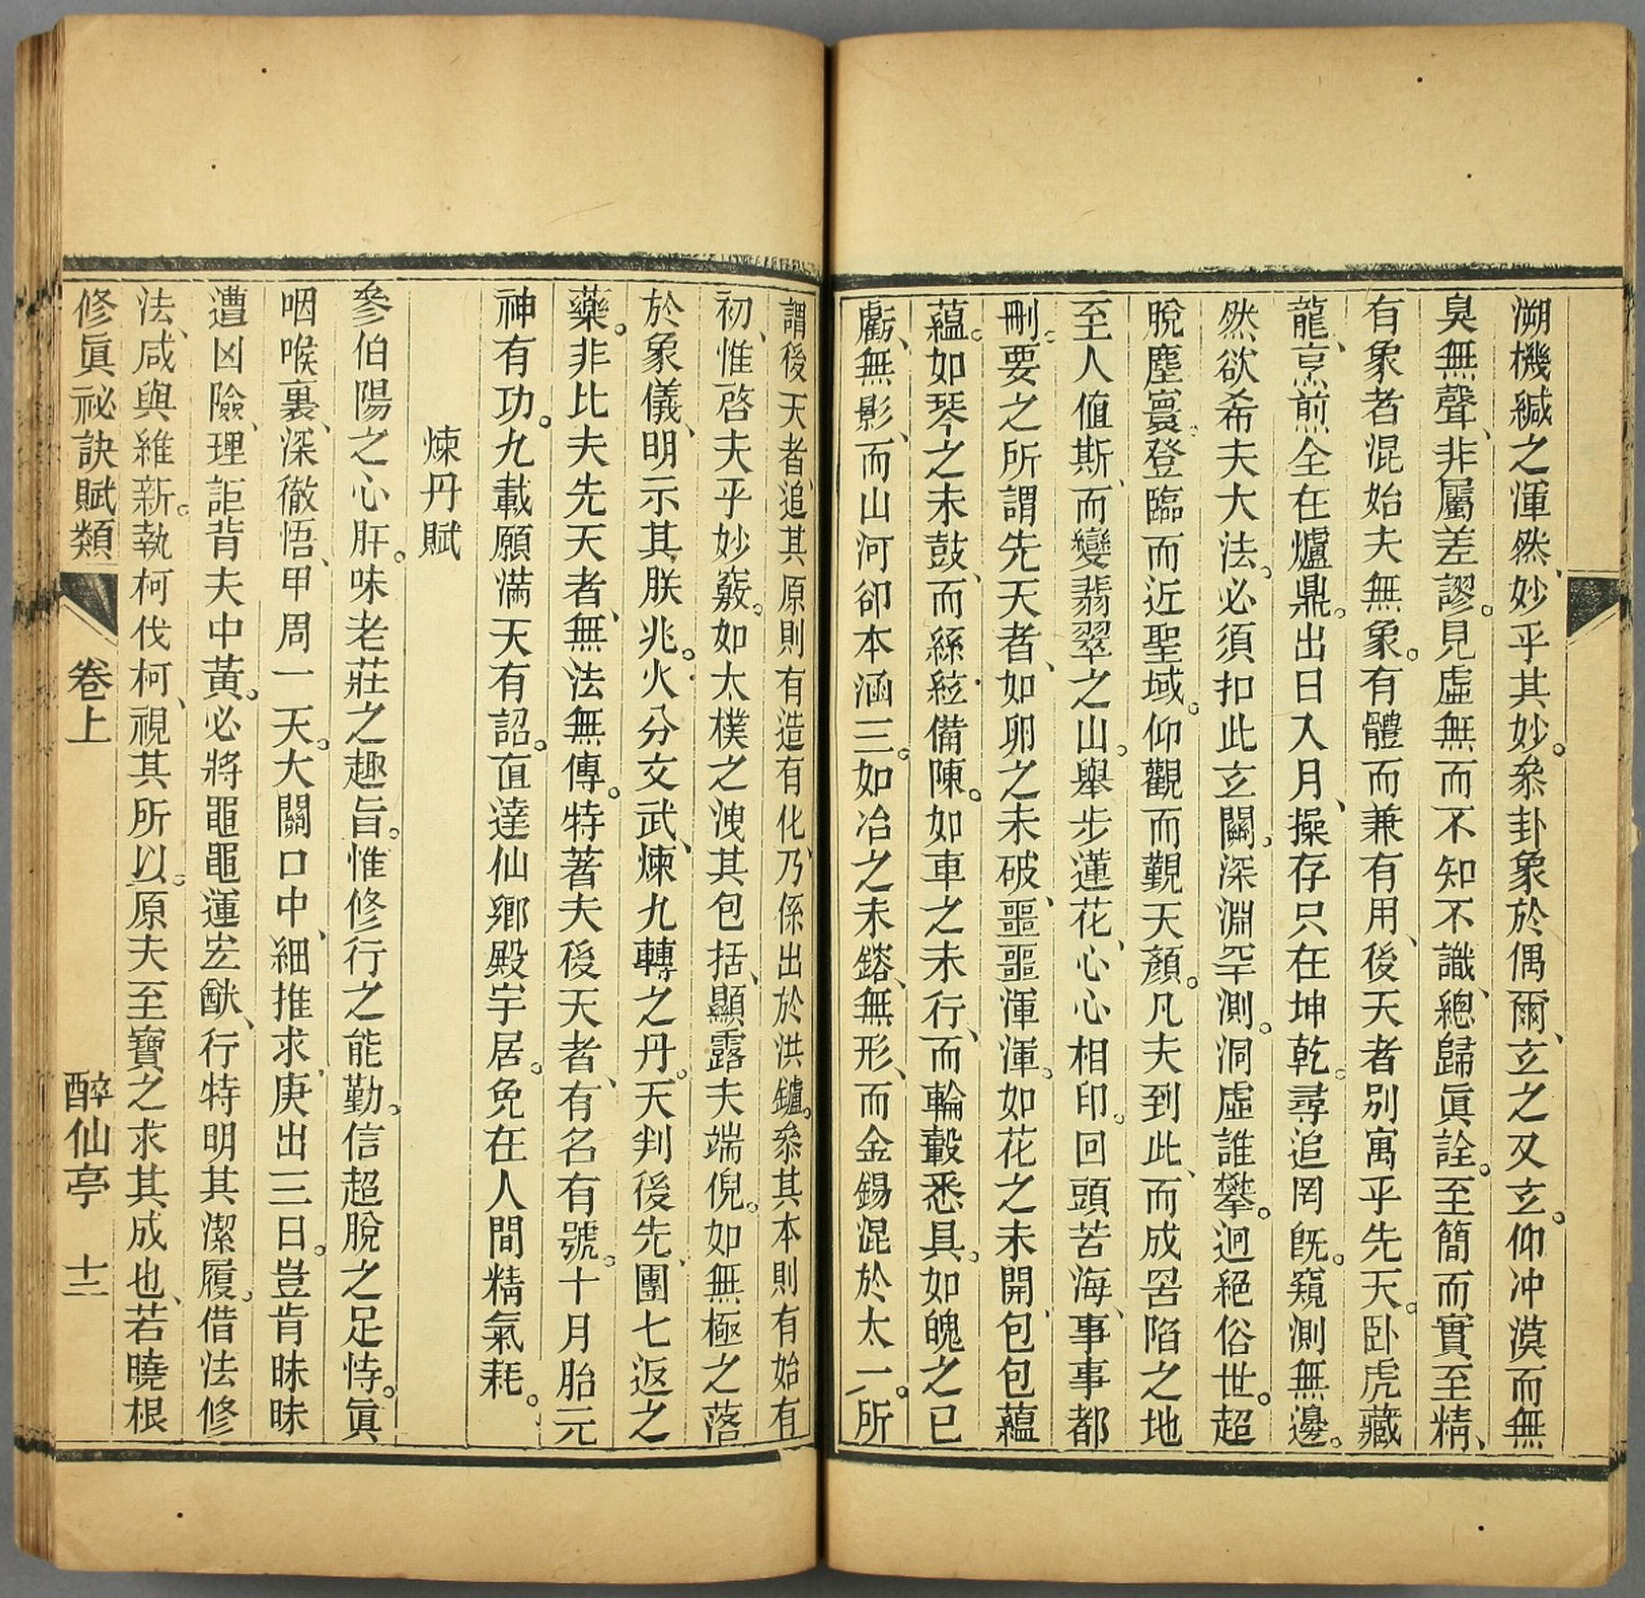 溯機緘之渾然、妙乎其妙。叅卦象於偶爾、玄之又玄。仰冲漠而無
臭無聲、非屬差謬。見虛無而不知不識、總歸眞詮。至簡而實至精、
有象者混始夫無象。有體而兼有用、後天者別寓乎先天。卧虎藏
龍、烹煎全在爐鼎。出日入月、操存只在坤乾。尋追罔旣。窺測無邊。
然欲希夫大法。必須扣此玄關。深淵罕測。洞虛誰攀。迥絕俗世。超
脫塵寰。登臨而近聖域。仰觀而覲天顏。凡夫到此、而成罟陷之地
至人値斯、而變翡翠之山。舉步蓮花、心心相印。回頭苦海、事事都
刪。要之所謂先天者、如卵之未破、噩噩渾渾。如花之未開、包包蘊
蘊。如琴之未鼓、而絲絃備陳。如車之未行、而輪轂悉具。如魄之已
虧、無影、而山河卻本涵三。如冶之未鎔、無形、而金錫混於太一。所
謂後天者、追其原則有造有化、乃係出於洪鑪。叅其本則有始有
初、惟啓夫乎妙竅。如太樸之洩其包括、顯露夫端倪。如無極之落
於象儀、明示其朕兆。火分文武、煉九轉之丹。天判後先、團七返之
藥。非比夫先天者、無法無傳。特著夫後天者、有名有號。十月胎元
神有功。九載願滿天有詔。直達仙鄉殿宇居。免在人間精氣耗。
煉丹賦
參伯陽之心肝。味老莊之趣旨。惟修行之能勤。信超脫之足恃。眞
咽喉裏、深徹悟、甲周一天。大關口中、細推求、庚出三日。豈肯昧昧
遭凶險、理詎背夫中黃。必將黽黽運宏猷、行特明其潔履。借法修
法、咸與維新。執柯伐柯、視其所以。原夫至寶之求其成也、若曉根
修眞祕訣賦類 卷上 醉仙亭 十三